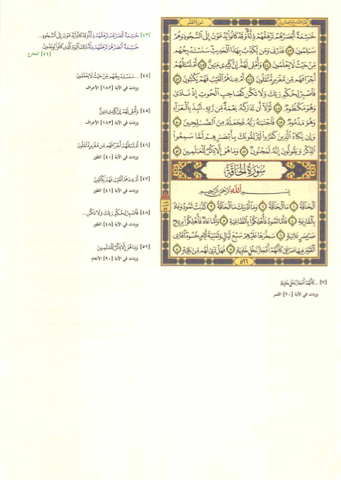 خَاشِعَةً أَبْصَارُهُمْ تَرْهَقُهُمْ ذِلَّةٌ وَقَدْ كَانُوا يُدْعَوْنَ إِلَى السُّجُودِ وَهُمْ
سَالِمُونَ ۝٤٣ فَذَرْنِي وَمَن يُكَذِّبُ بِهَٰذَا الْحَدِيثِ سَنَسْتَدْرِجُهُم
مِّنْ حَيْثُ لَا يَعْلَمُونَ ۝٤٤ وَأُمْلِي لَهُمْ إِنَّ كَيْدِي مَتِينٌ ۝٤٥ أَمْ تَسْأَلُهُمْ
أَجْرًا فَهُم مِّن مَّغْرَمٍ مُّثْقَلُونَ ۝٤٦ أَمْ عِندَهُمُ الْغَيْبُ فَهُمْ يَكْتُبُونَ ۝٤٧
فَاصْبِرْ لِحُكْمِ رَبِّكَ وَلَا تَكُن كَصَاحِبِ الْحُوتِ إِذْ نَادَىٰ
وَهُوَ مَكْظُومٌ ۝٤٨ لَّوْلَا أَن تَدَارَكَهُ نِعْمَةٌ مِّن رَّبِّهِ لَنُبِذَ بِالْعَرَاءِ
وَهُوَ مَذْمُومٌ ۝٤٩ فَاجْتَبَاهُ رَبُّهُ فَجَعَلَهُ مِنَ الصَّالِحِينَ ۝٥٠
وَإِن يَكَادُ الَّذِينَ كَفَرُوا لَيُزْلِقُونَكَ بِأَبْصَارِهِمْ لَمَّا سَمِعُوا
الذِّكْرَ وَيَقُولُونَ إِنَّهُ لَمَجْنُونٌ ۝٥١ وَمَا هُوَ إِلَّا ذِكْرٌ لِّلْعَالَمِينَ ۝٥٢
سُورَةُ الْحَاقَّةِ
بِسْمِ اللَّهِ الرَّحْمَٰنِ الرَّحِيمِ
الْحَاقَّةُ ۝١ مَا الْحَاقَّةُ ۝٢ وَمَا أَدْرَاكَ مَا الْحَاقَّةُ ۝٣ كَذَّبَتْ ثَمُودُ وَعَادٌ
بِالْقَارِعَةِ ۝٤ فَأَمَّا ثَمُودُ فَأُهْلِكُوا بِالطَّاغِيَةِ ۝٥ وَأَمَّا عَادٌ فَأُهْلِكُوا بِرِيحٍ
صَرْصَرٍ عَاتِيَةٍ ۝٦ سَخَّرَهَا عَلَيْهِمْ سَبْعَ لَيَالٍ وَثَمَانِيَةَ أَيَّامٍ حُسُومًا فَتَرَى
الْقَوْمَ فِيهَا صَرْعَىٰ كَأَنَّهُمْ أَعْجَازُ نَخْلٍ خَاوِيَةٍ ۝٧ فَهَلْ تَرَىٰ لَهُم مِّن بَاقِيَةٍ ۝٨
٥٦٦
[٤٣] خَاشِعَةً أَبْصَارُهُمْ تَرْهَقُهُمْ ذِلَّةٌ وَقَدْ كَانُوا يُدْعَوْنَ إِلَى السُّجُودِ...
خَاشِعَةً أَبْصَارُهُمْ تَرْهَقُهُمْ ذِلَّةٌ ذَٰلِكَ الْيَوْمُ الَّذِي كَانُوا يُوعَدُونَ
[٤٤] المعارج
[٤٤] ...سَنَسْتَدْرِجُهُم مِّنْ حَيْثُ لَا يَعْلَمُونَ
وردت في الآية [١٨٢] الأعراف
[٤٥] وَأُمْلِي لَهُمْ إِنَّ كَيْدِي مَتِينٌ
وردت في الآية [١٨٣] الأعراف
[٤٦] أَمْ تَسْأَلُهُمْ أَجْرًا فَهُم مِّن مَّغْرَمٍ مُّثْقَلُونَ
وردت في الآية [٤٠] الطور
[٤٧] أَمْ عِندَهُمُ الْغَيْبُ فَهُمْ يَكْتُبُونَ
وردت في الآية [٤١] الطور
[٤٨] فَاصْبِرْ لِحُكْمِ رَبِّكَ وَلَا تَكُن...
وردت في الآية [٤٨] الطور
[٥٢] وَمَا هُوَ إِلَّا ذِكْرٌ لِّلْعَالَمِينَ
وردت في الآية [٩٠] الأنعام
[٧] ...كَأَنَّهُمْ أَعْجَازُ نَخْلٍ خَاوِيَةٍ
وردت في الآية [٢٠] القمر